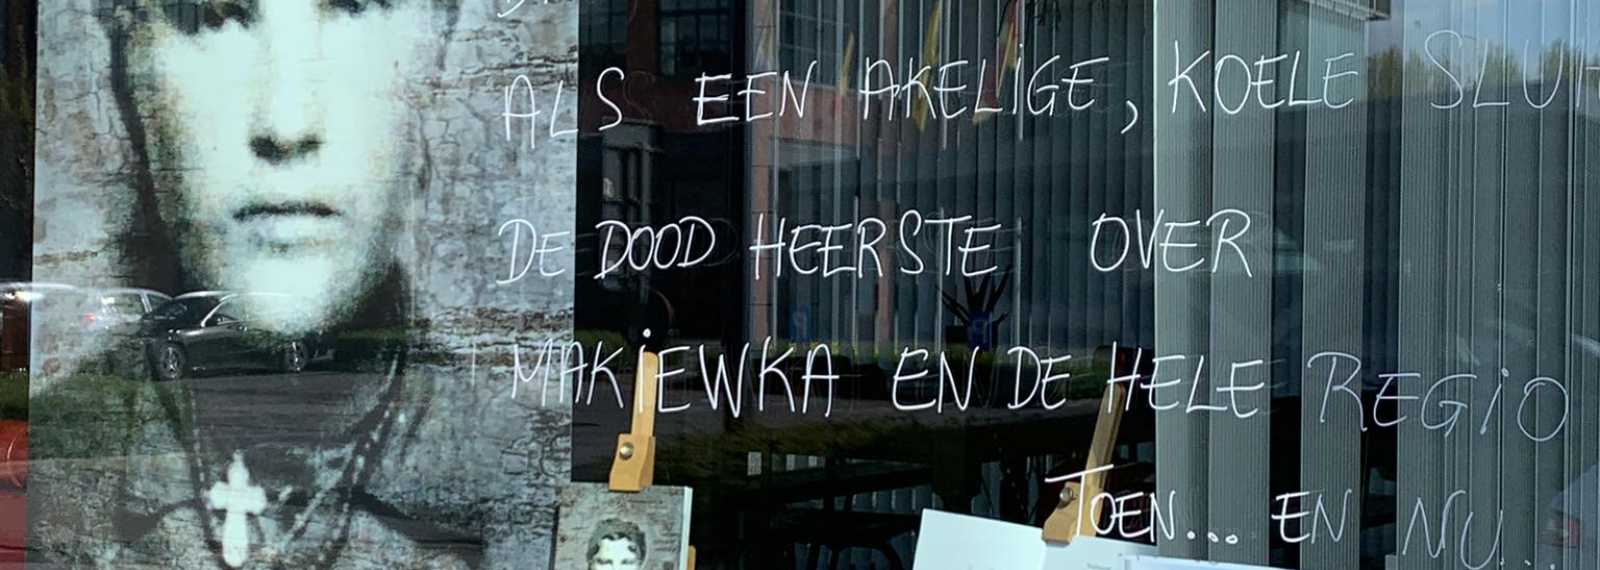 ALS EEN AKELIGE, KOELE
DE DOOD HEERSTE OVER
MAKIEWKA EN DE HELE REGIO
TOEN... EN NU...